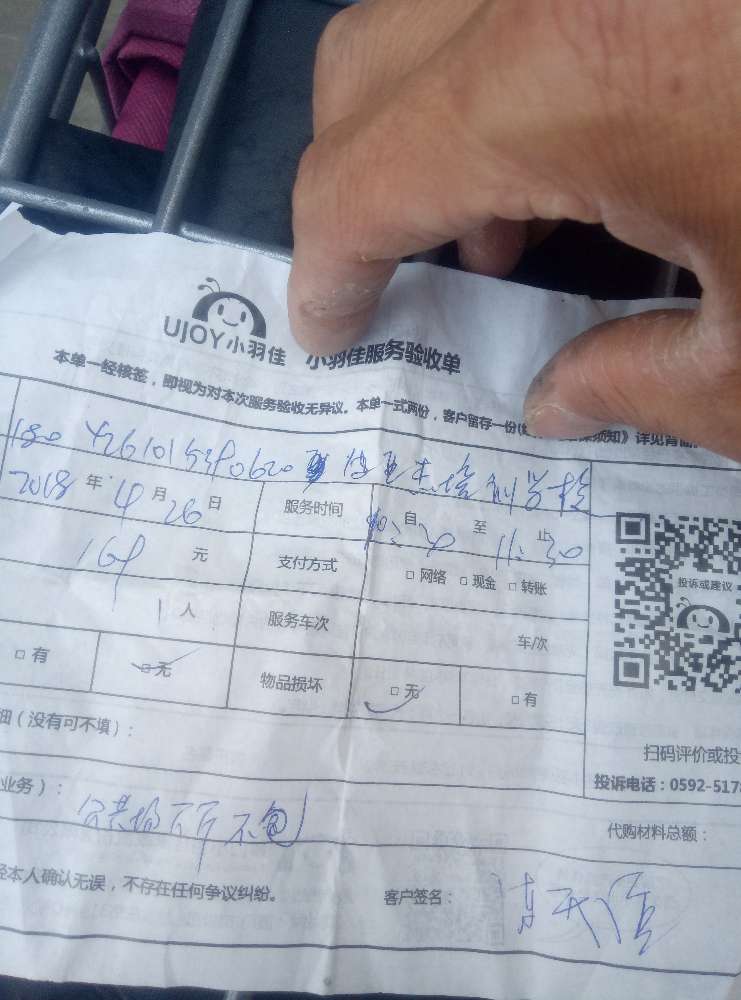 UJOY小羽佳 小羽佳服务验收单
本单一经核签，即视为对本次服务验收无异议。本单一式两份，客户留存一份 须知》详见背面
培训学校
2018年4月26日 服务时间 自 至 11:30 止
元 支付方式 □网络 □现金 □转账
1人 服务车次 车/次
□有 □无 物品损坏 □无 □有
投诉或建议
细（没有可不填）：
扫码评价或投
投诉电话：0592-517
业务）：
不包
代购材料总额：
经本人确认无误，不存在任何争议纠纷。 客户签名：